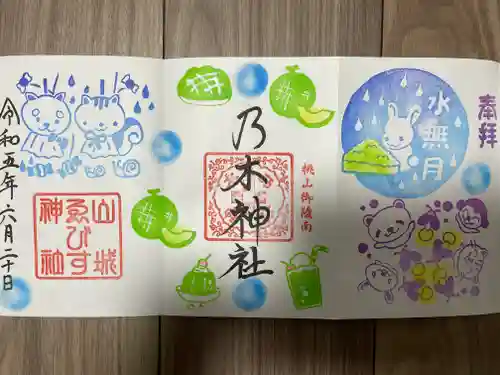 奉拝
水無月
桃山御陵南
乃木神社
山城
ゑびす
神社
令和五年六月二十日